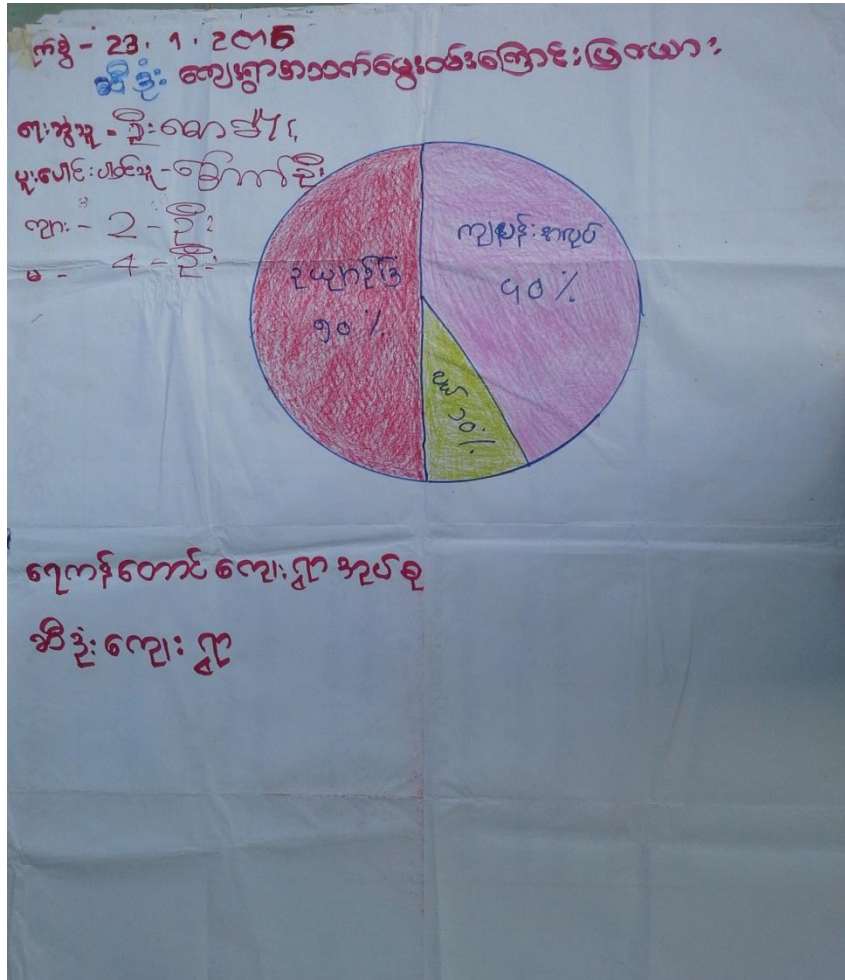 ရက်စွဲ - 23.1.2015
ဆီဒုံး ကျေးရွာအသက်မွေးဝမ်းကြောင်းပြဇယား
ရေးဆွဲသူ - ဦး
ပူးပေါင်းပါဝင်သူ - ခြောက်ဦး
ကျား - 2 - ဦး
မ - 4 - ဦး
ဥယျာဉ်ခြံ
၅၀ %
ကျပန်းအလုပ်
၄၀ %
လယ်
၁၀ %
ရေကန်တောင် ကျေးရွာအုပ်စု
ဆီဒုံးကျေးရွာ